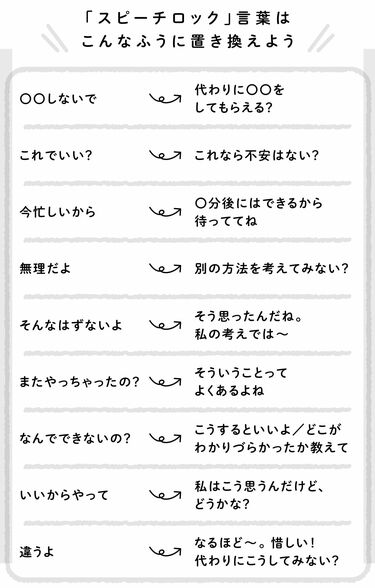 「スピーチロック」言葉は
こんなふうに置き換えよう
〇〇しないで
代わりに〇〇を
してもらえる？
これでいい？
これなら不安はない？
今忙しいから
〇分後にはできるから
待っててね
無理だよ
別の方法を考えてみない？
そんなはずないよ
そう思ったんだね。
私の考えでは〜
またやっちゃったの？
そういうことって
よくあるよね
なんでできないの？
こうするといいよ／どこが
わかりづらかったか教えて
いいからやって
私はこう思うんだけど、
どうかな？
違うよ
なるほど〜。惜しい！
代わりにこうしてみない？